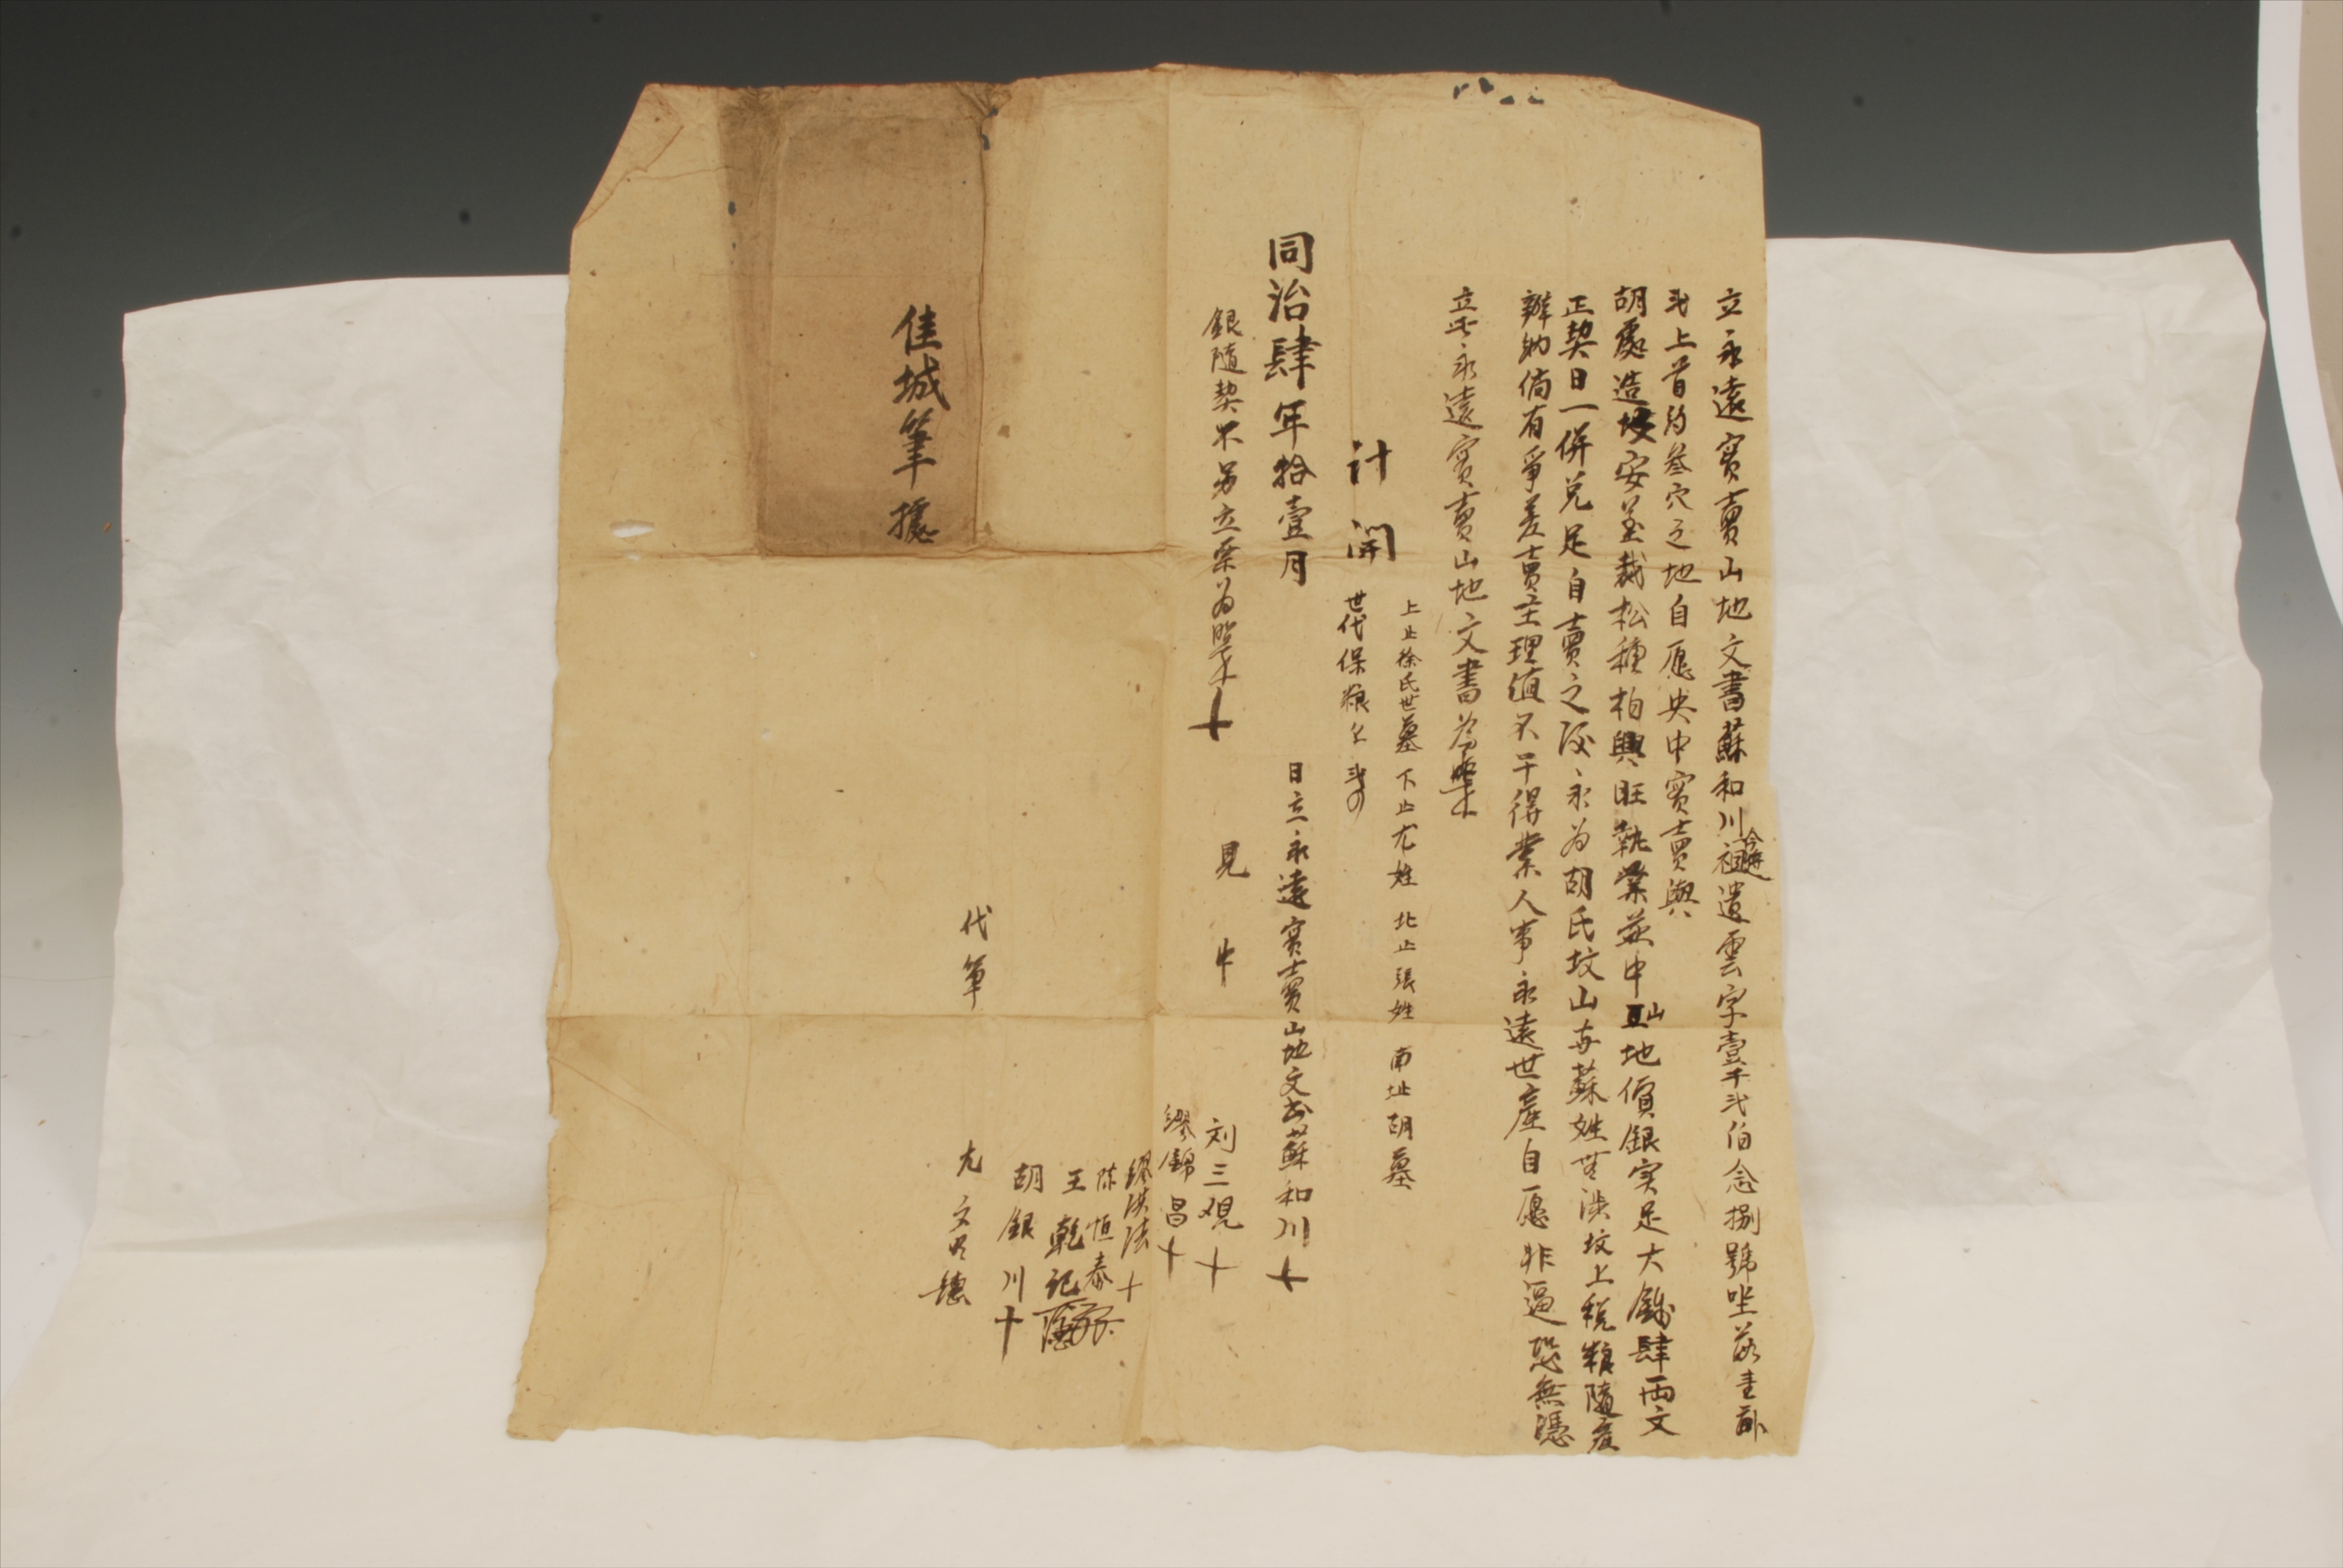 立永遠賣山地文書蘇和川今將祖遺雲字壹千弍伯念捌號坐
弍上首約叁穴之地自愿央中賣與
胡處造墳安塟栽松種柏興旺執業茲中山地價銀实足大錢肆両文
正契日一併兌足自賣之後永為胡氏坟山与蘇姓無涉坟上稅糧隨產
辦納倘有爭差賣主理值不干得業人事永遠世產自愿非逼恐無憑
立此永遠賣山地文書為照
上止徐氏世墓 下止尤姓 北止張姓 南址胡墓
計開 世代保糧
同治肆年拾壹月 日立永遠賣山地文书蘇和川十
銀隨契不另立票為照十 見中 刘三观十
繆錦昌十
繆洪法十
陈恒泰
王乾記
胡銀川十
代筆 尤文
佳城筆據